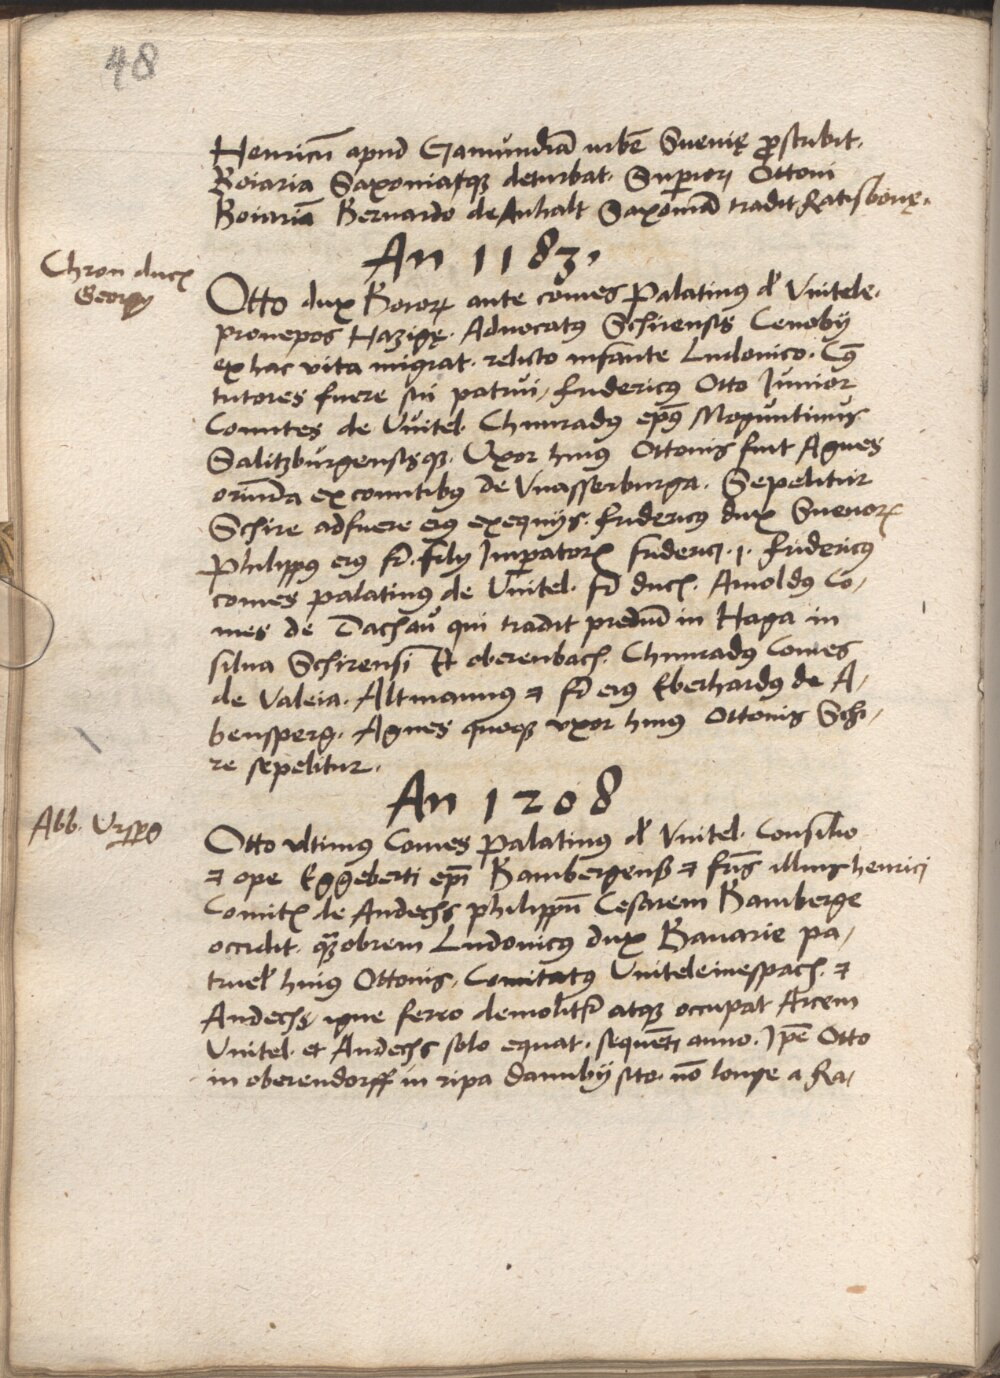 48
Henricū apud Gamundiā urbē Sueuię ꝓscribit.
Boiaria Saxoniaqꝫ deturbat. Superiorē Ottoni
Boiariā Bernardo de Anhalt Saxoniā tradit Ratisbonę.
An 1183.
Chron duc
Georgij
Otto dux Boiorꝝ ante comes Palatinꝰ d' Vuitele.
pronepos Hazigę. Aduocatꝰ Schirensis Cenobij
ex hac vita migrat. relicto infante Ludouico. Cꝰ
tutores fuere sui patrui, fridericꝰ Otto Iunior
Comites de Vuitel. Chunradꝰ ep̄s Moguntinus
Salitzburgensisqꝫ. Uxor huiꝰ Ottonis fuit Agnes
oriūda ex comitibꝰ de Vuasserburga. Sepelitur
Schire adfuere eiꝰ exequijs. fridericꝰ dux Sueuorꝝ
Philippꝰ eiꝰ fr̄. filij Imperatorꝭ friderici .1. fridericꝰ
comes palatinꝰ de Vuitel. fr̄ ducꝭ. Arnoldꝰ Co-
mes de Dachau qui tradit prediū in Haga in
silua Schirensi Et oberenbach. Chunradꝰ Comes
de Valeia. Altmannꝰ ⁊ fr̄ eiꝰ Eberhardꝰ de A-
bensperg. Agnes quoqꝫ vxor huiꝰ Ottonis Schi-
re sepelitur.
An 1208
Abb. Ursperg
Otto ultimꝰ Comes Palatinꝰ d' Vuitel. Consilio
⁊ ope Eggeberti ep̄i Bambergensis ⁊ fr̄is illius henrici
Comitꝭ de Andechs philippū Cesarem Bamberge
occidit. quāobrem Ludouicꝰ dux Bauarie pa-
truel' huiꝰ Ottonis, Comitatꝰ Vuiteleinespach. ⁊
Andechs igne ferro demolitr̄ atqꝫ occupat Arcem
Vuitel. et Andechs solo equat. sequēti anno. Ip̄e Otto
in oberendorff in ripa danubij sito. nō longe a Ra-